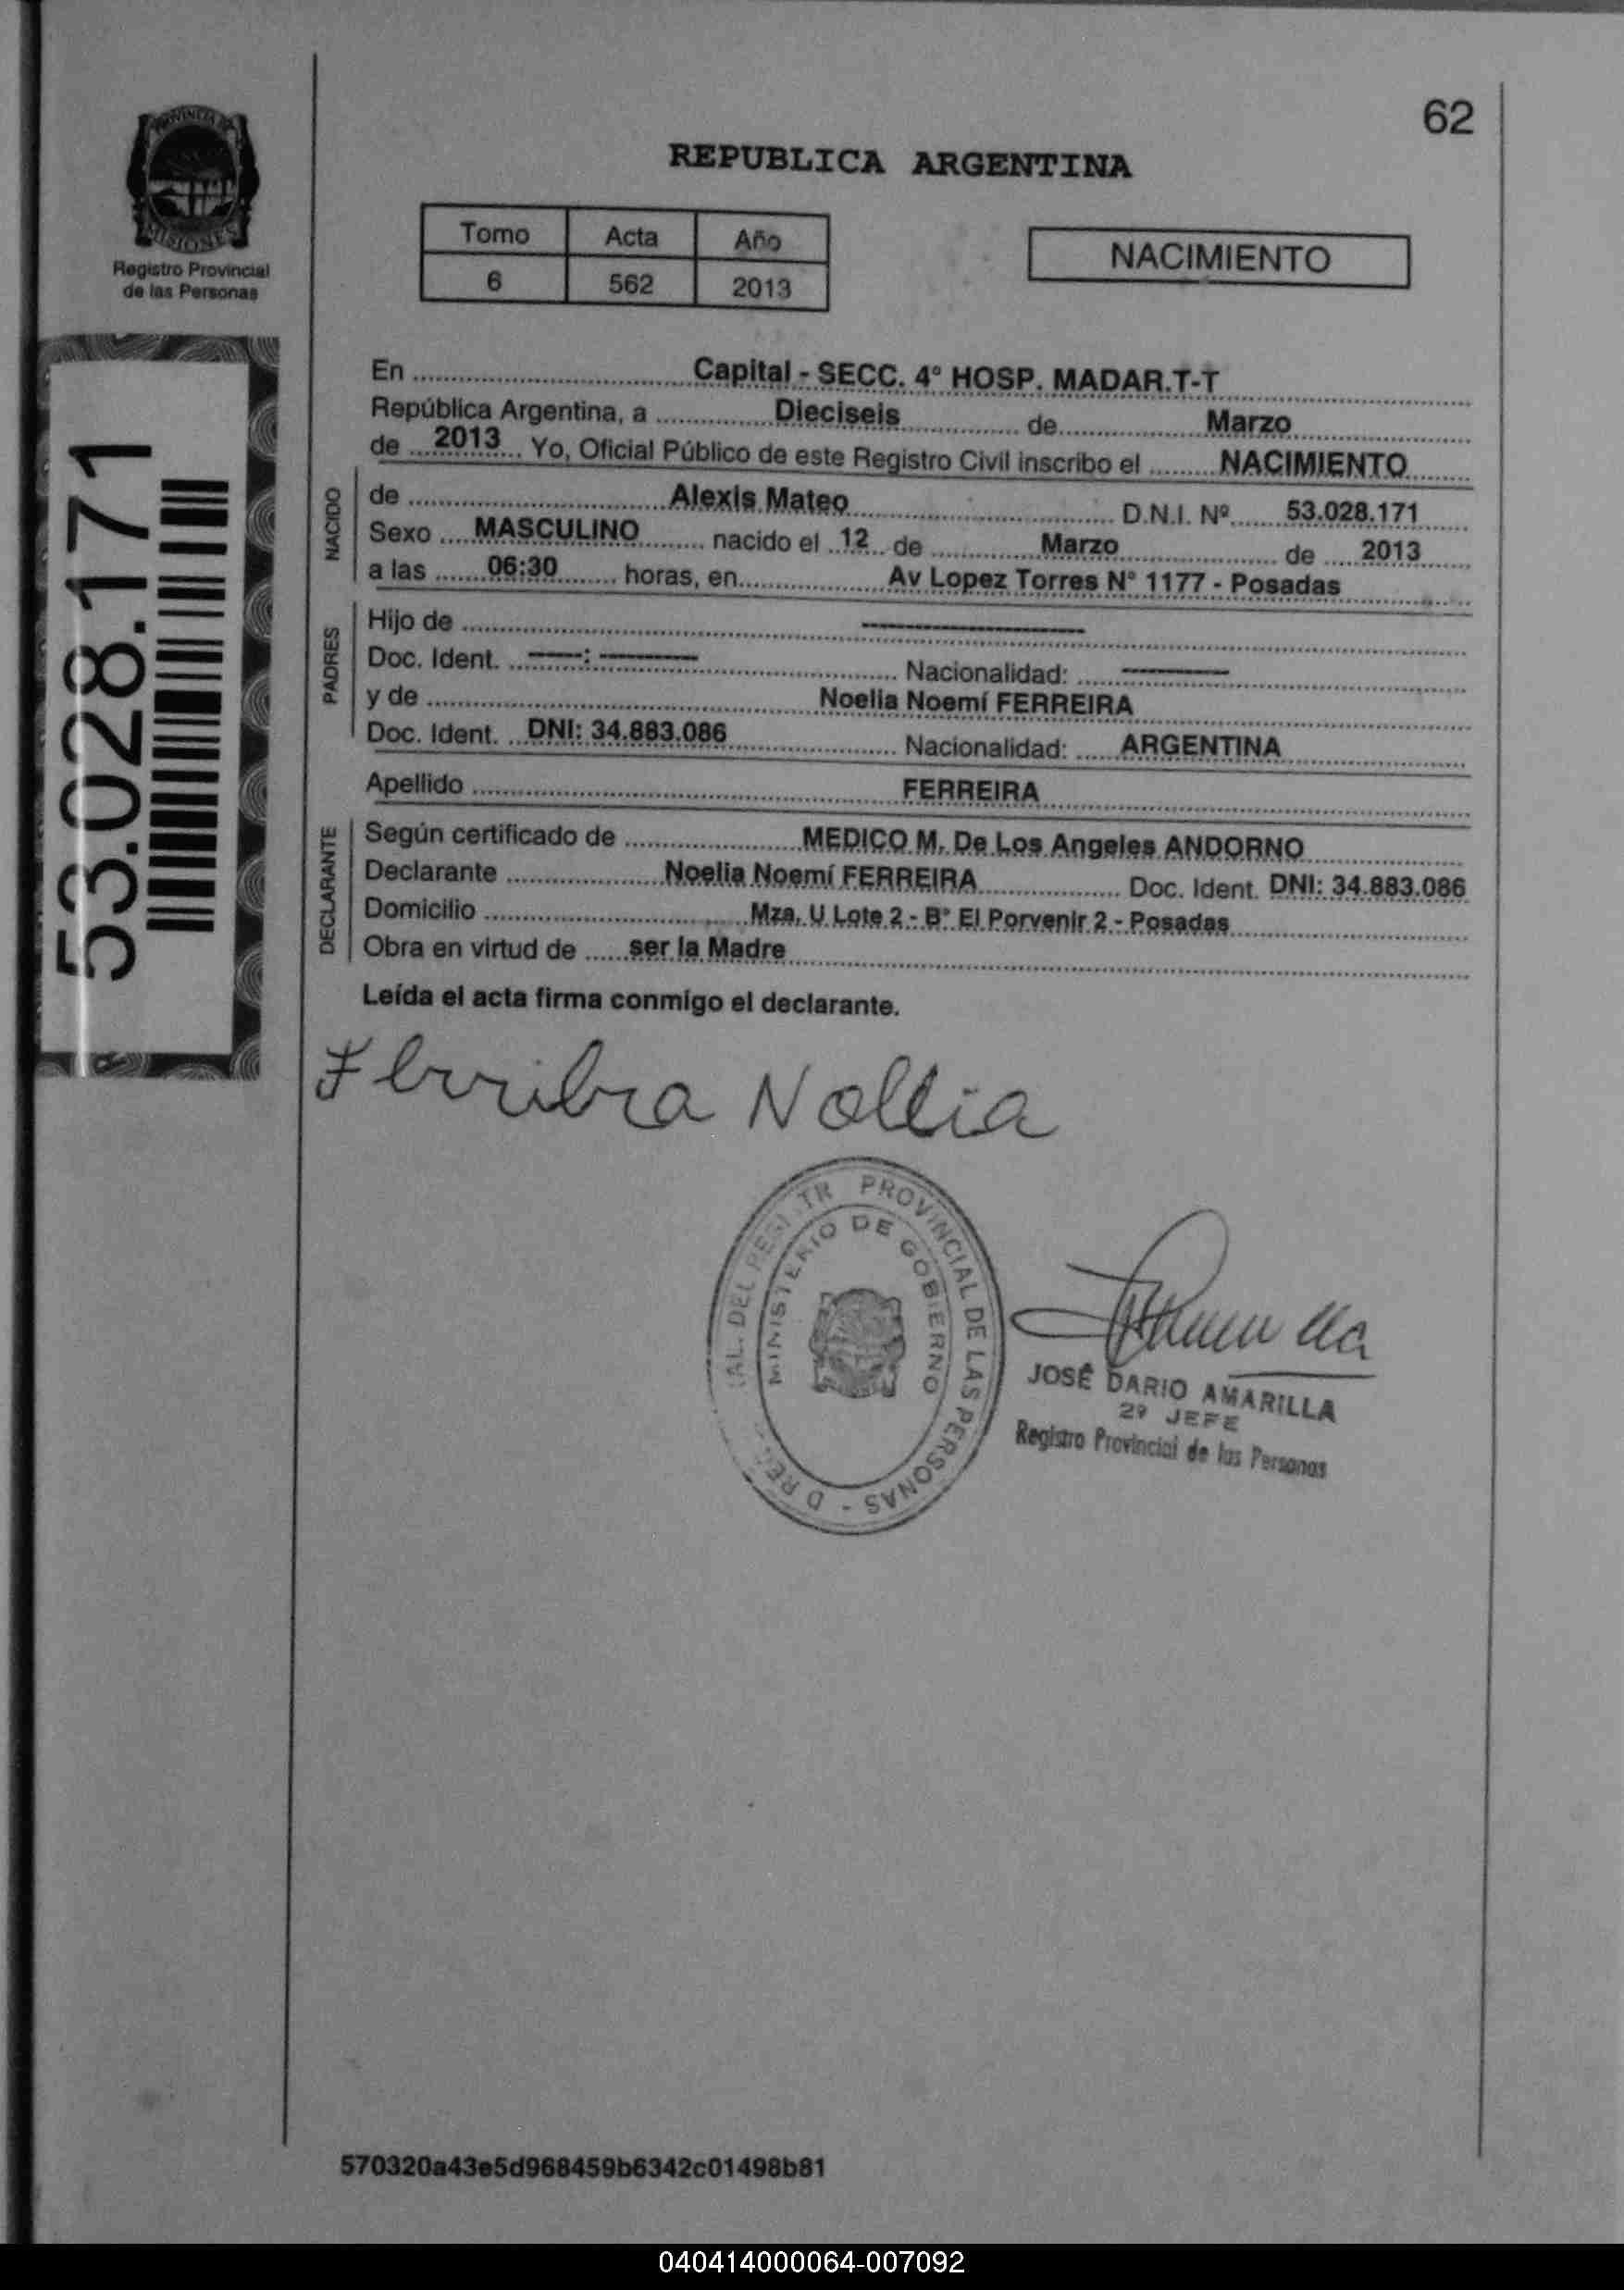 62
PROVINCIA DE
MISIONES
Registro Provincial
de las Personas
REPUBLICA ARGENTINA
Tomo Acta Año
6 562 2013
NACIMIENTO
53.028.171
En Capital - SECC. 4° HOSP. MADAR.T-T
República Argentina, a Dieciseis de Marzo
de 2013 Yo, Oficial Público de este Registro Civil inscribo el NACIMIENTO
NACIDO
de Alexis Mateo D.N.I. Nº 53.028.171
Sexo MASCULINO nacido el 12 de Marzo de 2013
a las 06:30 horas, en Av Lopez Torres N° 1177 - Posadas
PADRES
Hijo de ————
Doc. Ident. ——: ———— Nacionalidad: ————
y de Noelia Noemí FERREIRA
Doc. Ident. DNI: 34.883.086 Nacionalidad: ARGENTINA
Apellido FERREIRA
DECLARANTE
Según certificado de MEDICO M. De Los Angeles ANDORNO
Declarante Noelia Noemí FERREIRA Doc. Ident. DNI: 34.883.086
Domicilio Mza. U Lote 2 - B° El Porvenir 2 - Posadas
Obra en virtud de ser la Madre
Leída el acta firma conmigo el declarante.
Ferreira Noelia
PROVINCIAL DE LAS PERSONAS -
MINISTERIO DE GOBIERNO
JOSÉ DARIO AMARILLA
2º JEFE
Registro Provincial de las Personas
570320a43e5d968459b6342c01498b81
040414000064-007092